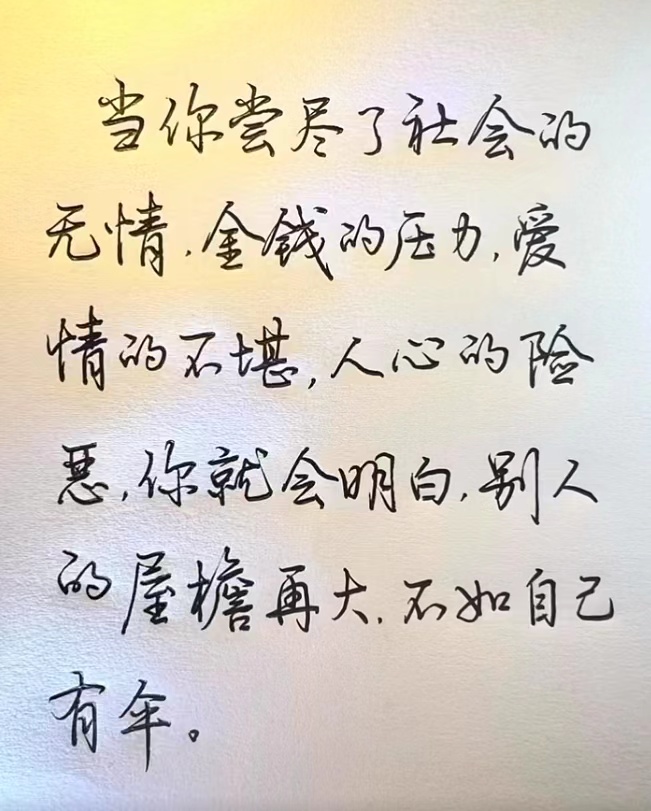 当你尝尽了社会的
无情,金钱的压力,爱
情的不堪,人心的险
恶,你就会明白,别人
的屋檐再大,不如自己
有伞。